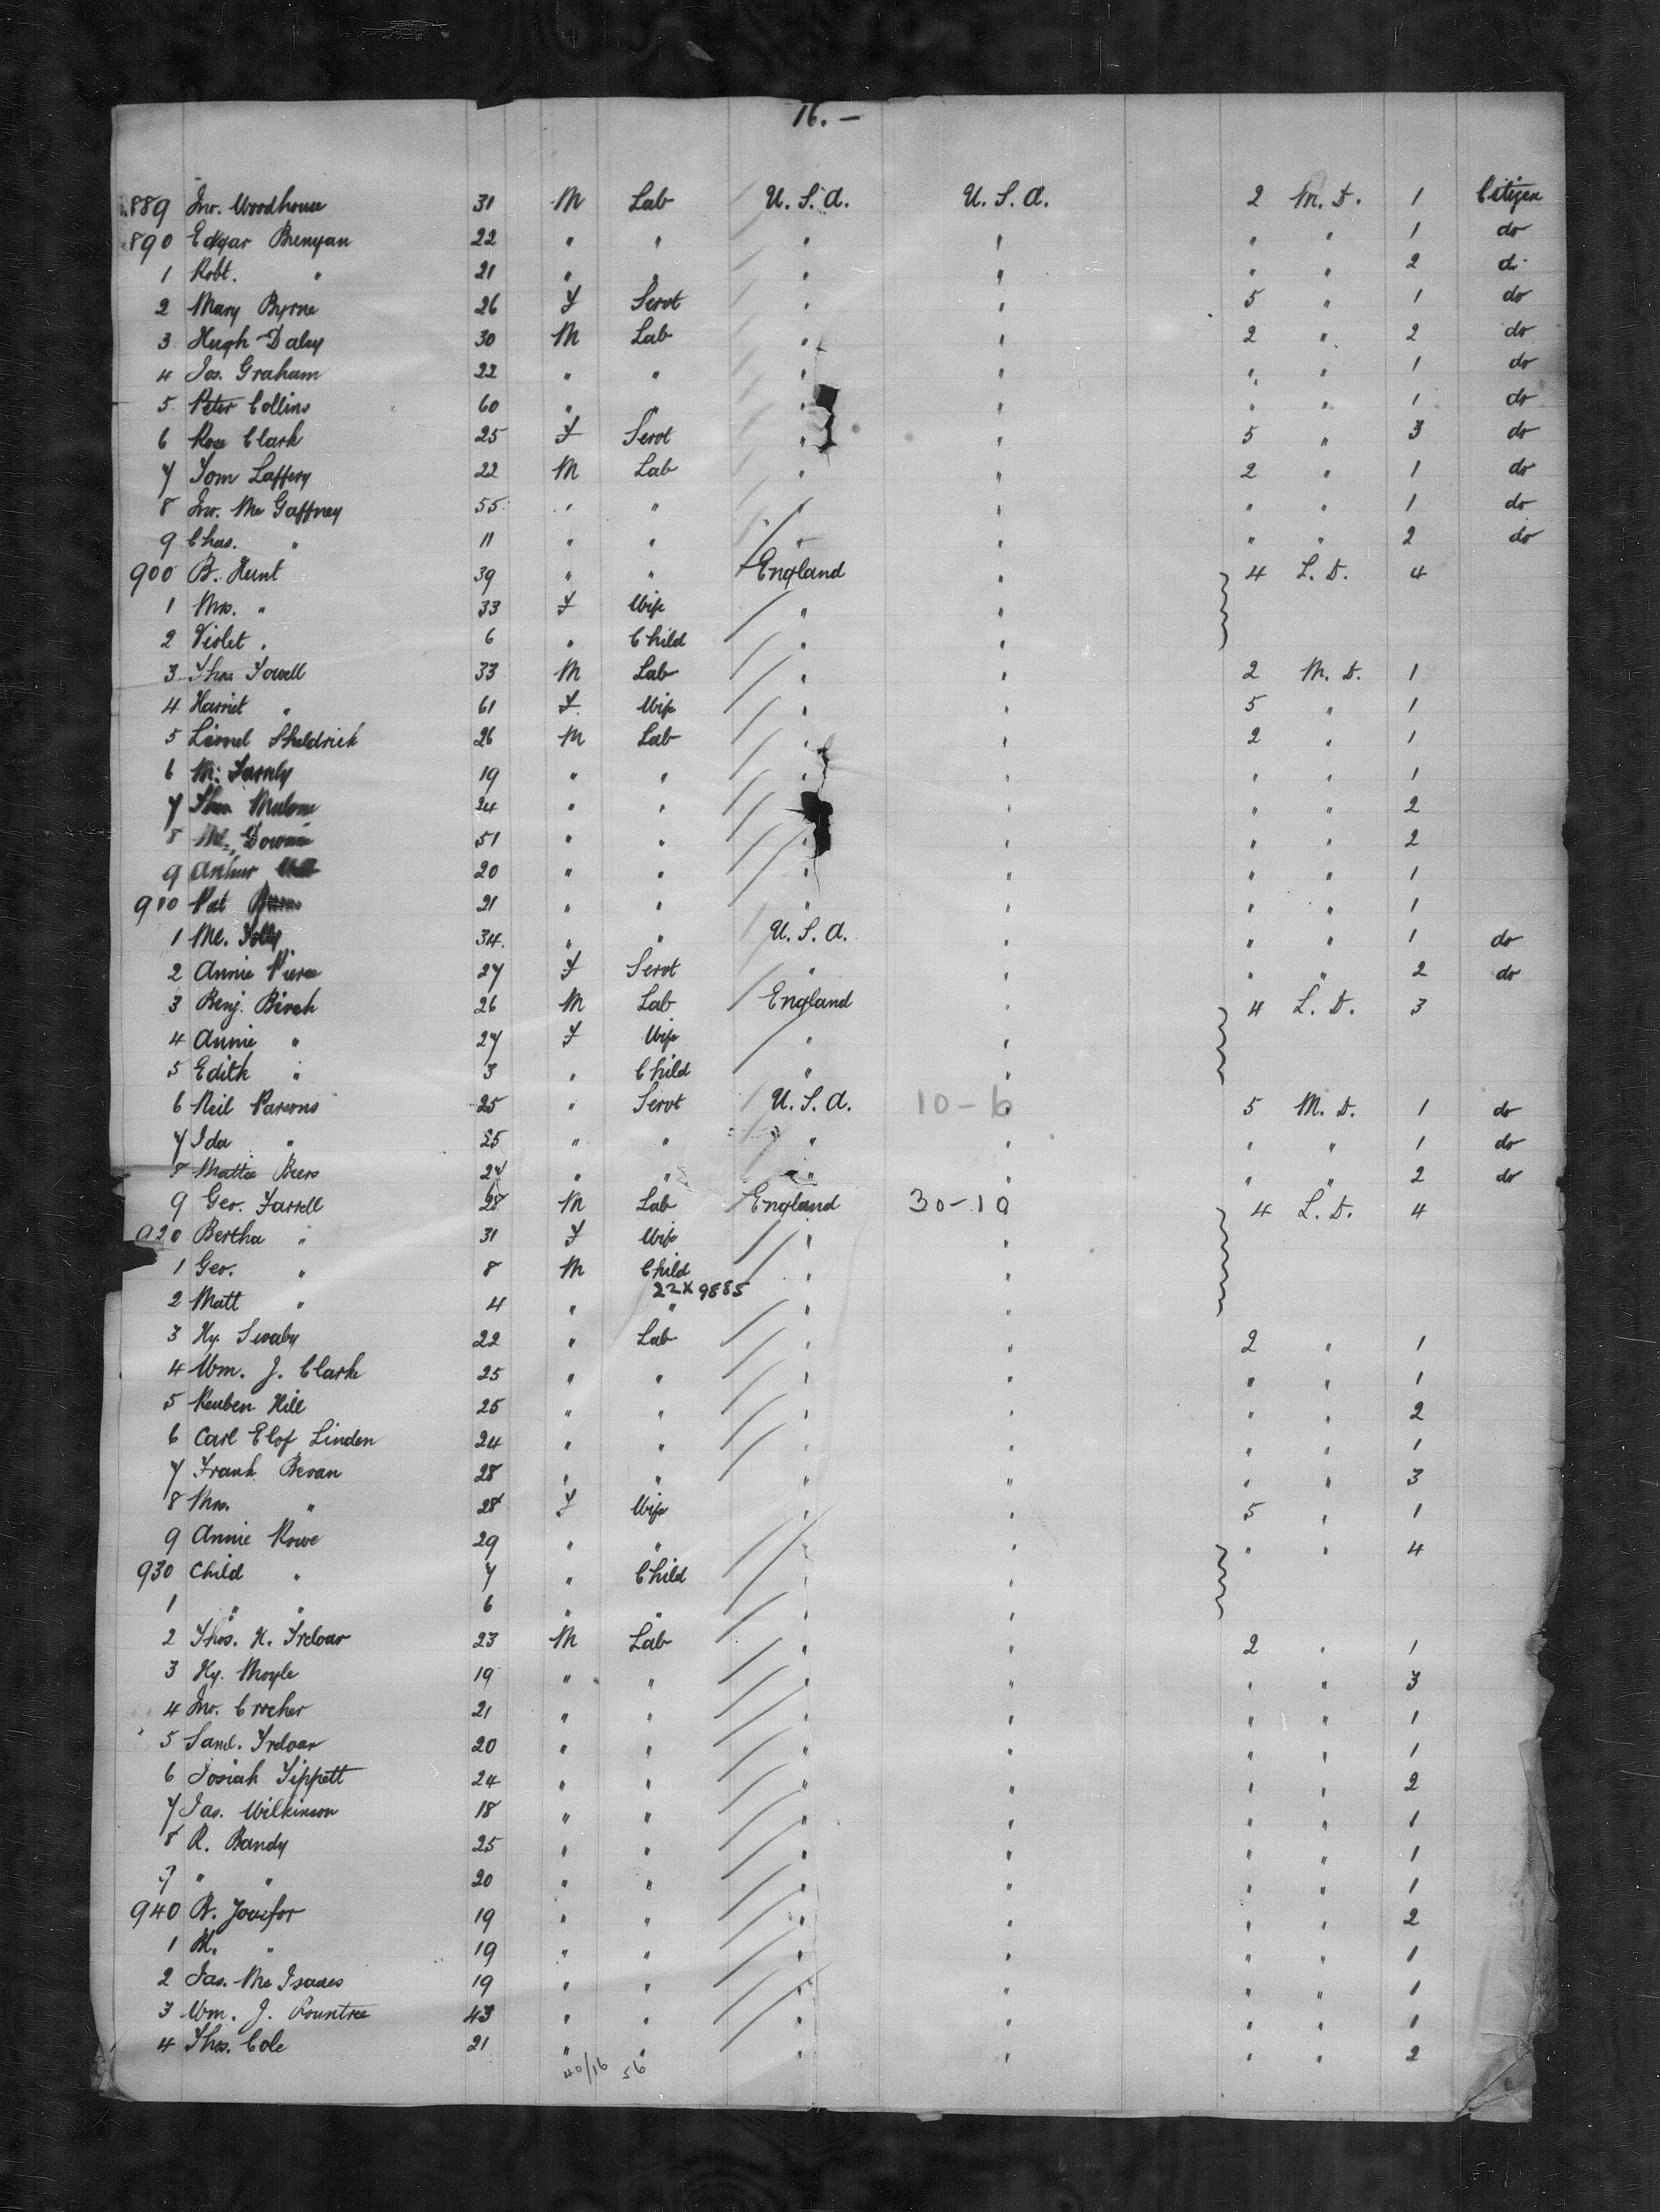 16. —
889 Jno. Woodhouse 31 M Lab U. S. A. U. S. A. 2 M. D. 1 Citizen
890 Edgar Brenyan 22 " " " " " " 1 do
1 Robt. " 21 " " " " " " 2 do
2 Mary Byrne 26 F Servt " " 5 " 1 do
3 Hugh Daley 30 M Lab " " 2 " 2 do
4 Jos. Graham 22 " " " " " " 1 do
5 Peter Collins 60 " " " " " " 1 do
6 Rose Clark 25 F Servt " " 5 " 3 do
7 Tom Laffery 22 M Lab " " 2 " 1 do
8 Jno. Mc Gaffney 55 " " " " " " 1 do
9 Chas. " 11 " " " " " " 2 do
900 B. Hunt 39 " " England " 4 L. D. 4
1 Mrs. " 33 F Wife " "
2 Violet " 6 " Child " "
3 Thos. Towell 33 M Lab " " 2 M. D. 1
4 Harriet " 61 F Wife " " 5 " 1
5 Lionel Sheldrick 26 M Lab " " 2 " 1
6 M. 19 " " " " " " 1
7 Thos. Malone 24 " " " " " " 2
8 51 " " " " " " 2
9 Arthur 20 " " " " " " 1
910 Pat 21 " " " " " " 1
1 Ml. 34 " " U. S. A. " " " 1 do
2 Annie Pierce 27 F Servt " " " " 2 do
3 Benj. Birch 26 M Lab England " 4 L. D. 3
4 Annie " 27 F Wife " "
5 Edith " 3 " Child " "
6 Neil Parsons 25 " Servt U. S. A. 10-6 " 5 M. D. 1 do
7 Ida " 25 " " " " " " 1 do
8 Mattie Beers 24 " " " " " " 2 do
9 Geo. Farrell M Lab England 30-10 4 L. D. 4
920 Bertha " 31 F Wife " "
1 Geo. " 8 M Child " "
22X9885
2 Matt " 4 " " " "
3 Hy. Swaby 22 " Lab " " 2 " 1
4 Wm. J. Clark 25 " " " " " " 1
5 Reuben Hill 25 " " " " " " 2
6 Carl Elof Linden 24 " " " " " " 1
7 Frank Bevan 28 " " " " " " 3
8 Mrs. " 28 F Wife " " 5 " 1
9 Annie Rowe 29 " " " " " " 4
930 Child " 7 " Child " "
1 " " 6 " " " "
2 Thos. H. Treloar 23 M Lab " " 2 " 1
3 Hy. Moyle 19 " " " " " " 3
4 Jno. Crocker 21 " " " " " " 1
5 Saml. Treloar 20 " " " " " " 1
6 Josiah Tippett 24 " " " " " " 2
7 Jas. Wilkinson 18 " " " " " " 1
8 R. Bandy 25 " " " " " " 1
9 " " 20 " " " " " " 1
940 B. 19 " " " " " " 2
1 M. " 19 " " " " " " 1
2 Jas. Mc Isaacs 19 " " " " " " 1
3 Wm. J. Rountree 43 " " " " " " 1
4 Thos. Cole 21 " " " " " " 2
40/16 56